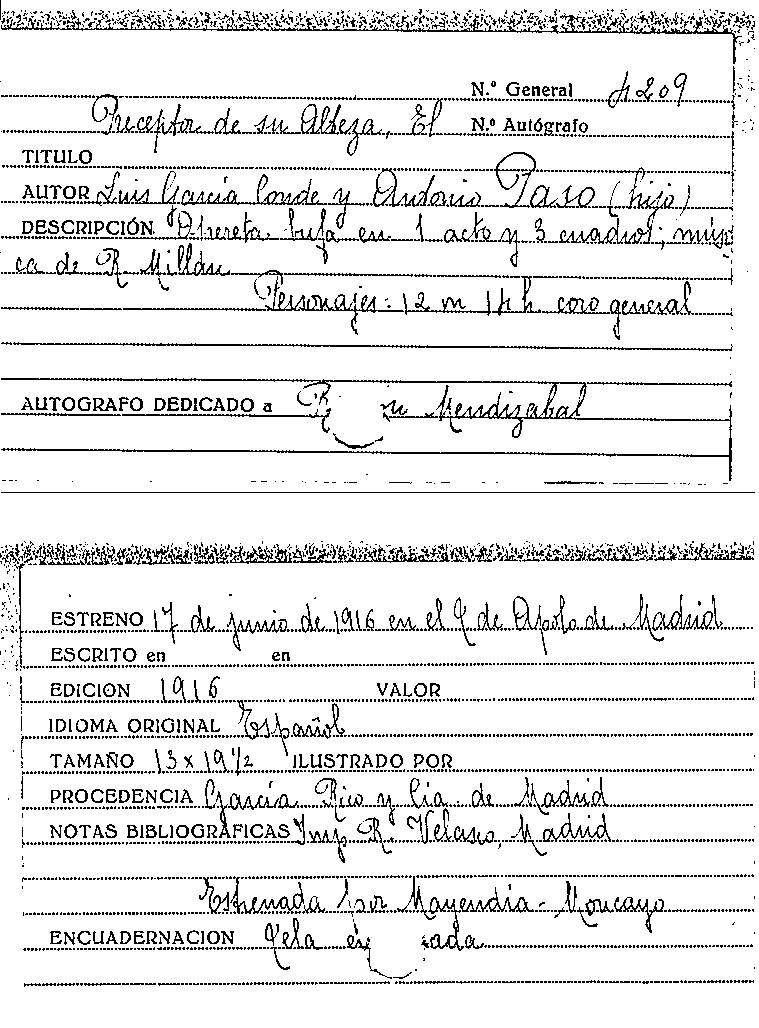 N.º General 4209
Preceptor de su Alteza, El N.º Autógrafo
TITULO
AUTOR Luis García Conde y Antonio Paso (hijo)
DESCRIPCIÓN Opereta bufa en 1 acto y 3 cuadros; músi
ca de R. Millán
Personajes: 12 m 14 h. coro general
AUTOGRAFO DEDICADO a Mendizabal
ESTRENO 17 de junio de 1916 en el T. de Apolo de Madrid
ESCRITO en en
EDICION 1916 VALOR
IDIOMA ORIGINAL Español
TAMAÑO 13 x 19 1/2 ILUSTRADO POR
PROCEDENCIA García Rico y Cia. de Madrid
NOTAS BIBLIOGRÁFICAS Imp. R. Velasco, Madrid
Estrenada por Mayendía - Moncayo
ENCUADERNACION Tela